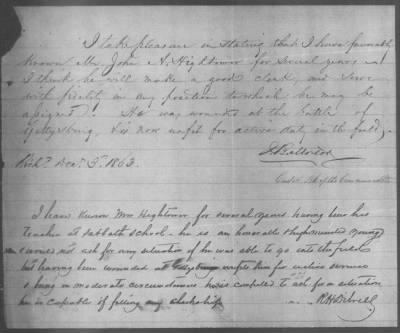 I take pleasure in stating that I have favorably
known Mr John A. Hightower for several years -
I think he will make a good clerk, and serve
with fidelity in any position to which he may be
assigned. He was wounded at the battle of
Gettysburg, & is now unfit for active duty in the field,
Richd. Decr. 5, 1863.
I have known Mr Hightower for several years having been his
teacher at sabbath school - he is an honorable high minded young
& would not ask for any situation if he was able to go into the field
but having been wounded at Gettysburg unfits him for active service
& being in moderate circumstances he is compelled to ask for a situation
he is capable of filling any clerkship